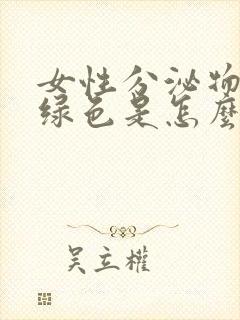 女性分泌物
绿色是怎麼
吴立權